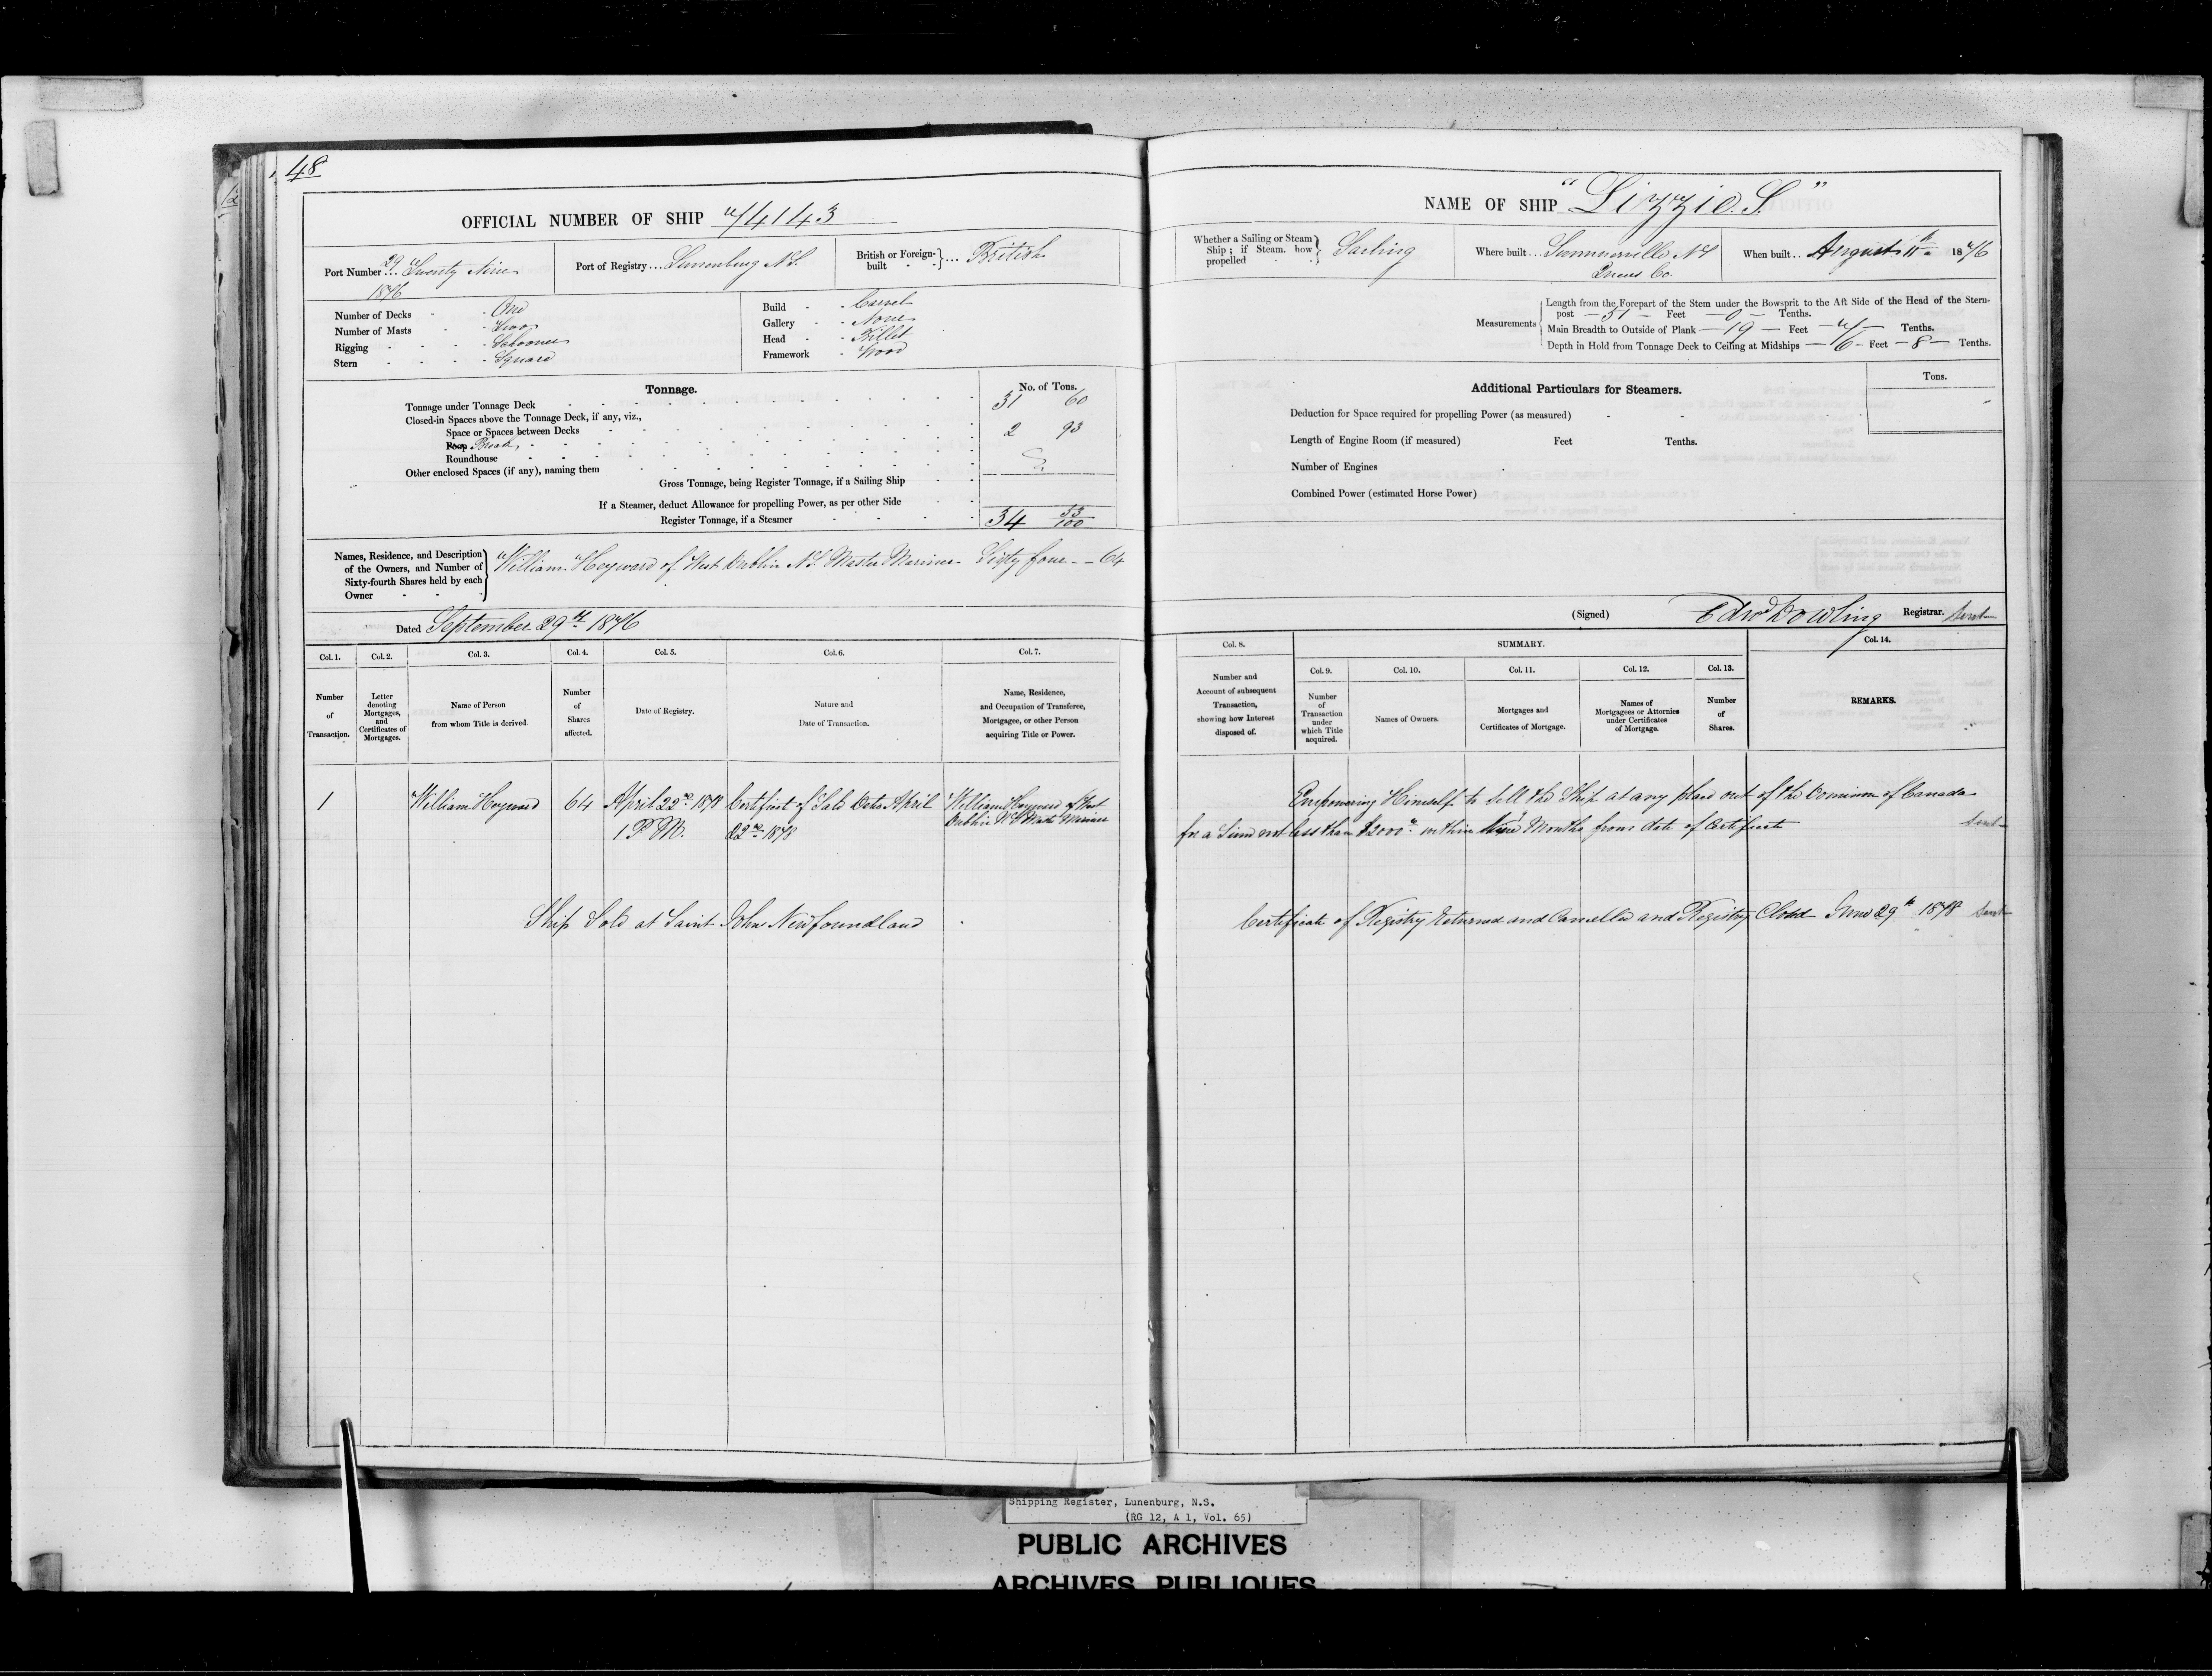 48
OFFICIAL NUMBER OF SHIP 74143
Port Number 29 Twenty Nine
1876
Port of Registry ... Lunenburg N.S.
British or Foreign-built ... British
Number of Decks - One
Number of Masts - Two
Rigging - Schooner
Stern - Square
Build - Carvel
Gallery - None
Head - Billet
Framework - Wood
Tonnage.
No. of Tons.
Tonnage under Tonnage Deck 31 60
Closed-in Spaces above the Tonnage Deck, if any, viz.,
Space or Spaces between Decks
Poop Break 2 93
Roundhouse
Other enclosed Spaces (if any), naming them
Gross Tonnage, being Register Tonnage, if a Sailing Ship
If a Steamer, deduct Allowance for propelling Power, as per other Side
Register Tonnage, if a Steamer 34 53/100
Names, Residence, and Description of the Owners, and Number of Sixty-fourth Shares held by each Owner
William Heyward of West Dublin N.S. Master Mariner Sixty four -- 64
Dated September 29th 1876
Col. 1. Col. 2. Col. 3. Col. 4. Col. 5. Col. 6. Col. 7.
Number of Transaction.
Letter denoting Mortgages, and Certificates of Mortgages.
Name of Person from whom Title is derived.
Number of Shares affected.
Date of Registry.
Nature and Date of Transaction.
Name, Residence, and Occupation of Transferee, Mortgagee, or other Person acquiring Title or Power.
1 William Heyward 64 April 22nd 1878 Certificate of Sale Date April William Heyward of West
1 P.M. 22nd 1878 Dublin N S Master Mariner
Ship Sold at Saint Johns Newfoundland
NAME OF SHIP "Lizzie. S."
Whether a Sailing or Steam Ship; if Steam. how propelled Sailing
Where built ... Summerville N S
Queens Co.
When built .. August 11th 1876
Measurements
Length from the Forepart of the Stem under the Bowsprit to the Aft Side of the Head of the Stern-
post - 51 - Feet - 0 - Tenths.
Main Breadth to Outside of Plank - 19 - Feet - 7 - Tenths.
Depth in Hold from Tonnage Deck to Ceiling at Midships - 6 - Feet - 8 - Tenths.
Additional Particulars for Steamers.
Tons.
Deduction for Space required for propelling Power (as measured)
Length of Engine Room (if measured) Feet Tenths.
Number of Engines
Combined Power (estimated Horse Power)
(Signed) Edwd Dowling Registrar. Sent
Col. 8. SUMMARY. Col. 14.
Col. 9. Col. 10. Col. 11. Col. 12. Col. 13.
Number and Account of subsequent Transaction, showing how Interest disposed of.
Number of Transaction under which Title acquired.
Names of Owners.
Mortgages and Certificates of Mortgage.
Names of Mortgagees or Attornies under Certificates of Mortgage.
Number of Shares.
REMARKS.
Empowering Himself to sell the Ship at any place out of the Dominion of Canada
for a Sum not less than $2000 within Months from date of Certificate Sent
Certificate of Registry Returned and Cancelled and Registry Closed June 29th 1878 Sent
Shipping Register, Lunenburg, N.S.
(RG 12, A 1, Vol. 65)
PUBLIC ARCHIVES
ARCHIVES PUBLIQUES